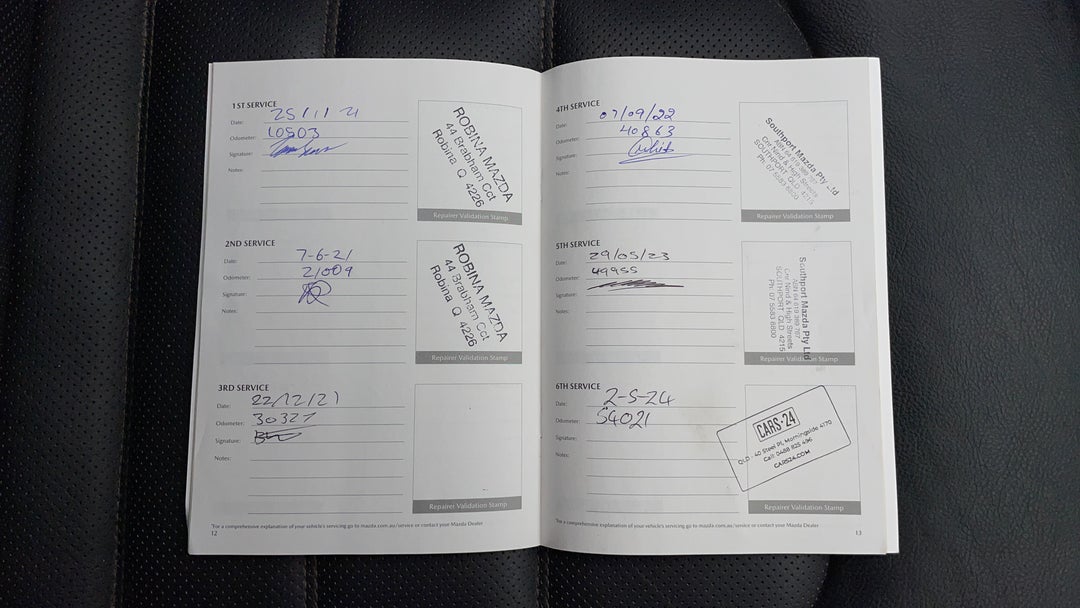 1ST SERVICE
Date: 25/11/21
Odometer: 10503
Signature:
Notes:
ROBINA MAZDA
44 Brabham Cct
Robina Q 4226
Repairer Validation Stamp
2ND SERVICE
Date: 7-6-21
Odometer: 21009
Signature:
Notes:
ROBINA MAZDA
44 Brabham Cct
Robina Q 4226
Repairer Validation Stamp
3RD SERVICE
Date: 22/12/21
Odometer: 30327
Signature:
Notes:
Repairer Validation Stamp
*For a comprehensive explanation of your vehicle's servicing go to mazda.com.au/service or contact your Mazda Dealer
12
4TH SERVICE
Date: 07/09/22
Odometer: 40863
Signature:
Notes:
Southport Mazda Pty Ltd
ABN 64 619 389 787
Cnr Nind & High Streets
SOUTHPORT QLD 4215
Ph: 07 5583 6800
Repairer Validation Stamp
5TH SERVICE
Date: 29/05/23
Odometer: 49955
Signature:
Notes:
Southport Mazda Pty Ltd
ABN 64 619 389 787
Cnr Nind & High Streets
SOUTHPORT QLD 4215
Ph: 07 5583 6800
Repairer Validation Stamp
6TH SERVICE
Date: 2-5-24
Odometer: 54021
Signature:
Notes:
CARS·24
QLD - 40 Steel Pl, Morningside 4170
Call: 0488 825 496
CARS24.COM
Repairer Validation Stamp
*For a comprehensive explanation of your vehicle's servicing go to mazda.com.au/service or contact your Mazda Dealer
13